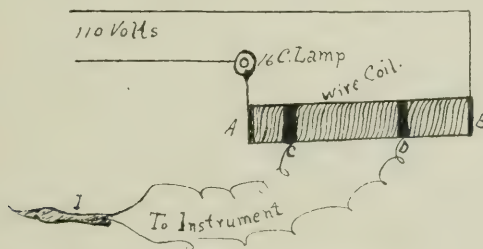 110 Volts
16 C. Lamp
wire Coil.
A
B
C
D
I
To Instrument